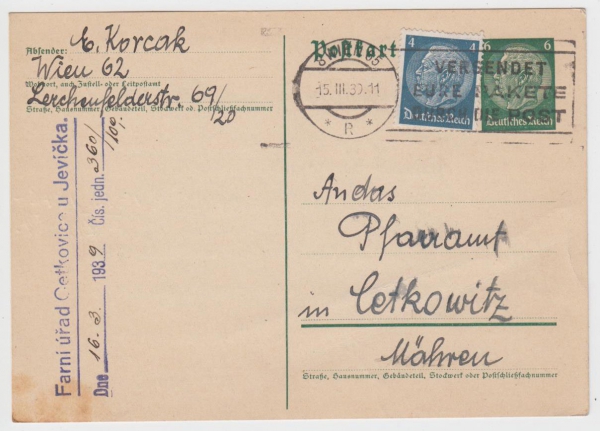 Absender: E. Korcak
Wien 62
Wohnort, auch Zustell- oder Leitpostamt
Lerchenfelderstr. 69/20
Straße, Hausnummer, Gebäudeteil, Stockwerk od. Postschließfachnummer
Farní úřad Cetkovice u Jevíčka.
Dne 16.3. 1939 Čís. jedn. 360/100.
Postkarte
15.III.39.11
* R *
VERSENDET
EURE PAKETE
POST
4 4
Deutsches Reich
6 6
Deutsches Reich
An das
Pfarramt
in Cetkowitz
Mähren
Straße, Hausnummer, Gebäudeteil, Stockwerk oder Postschließfachnummer